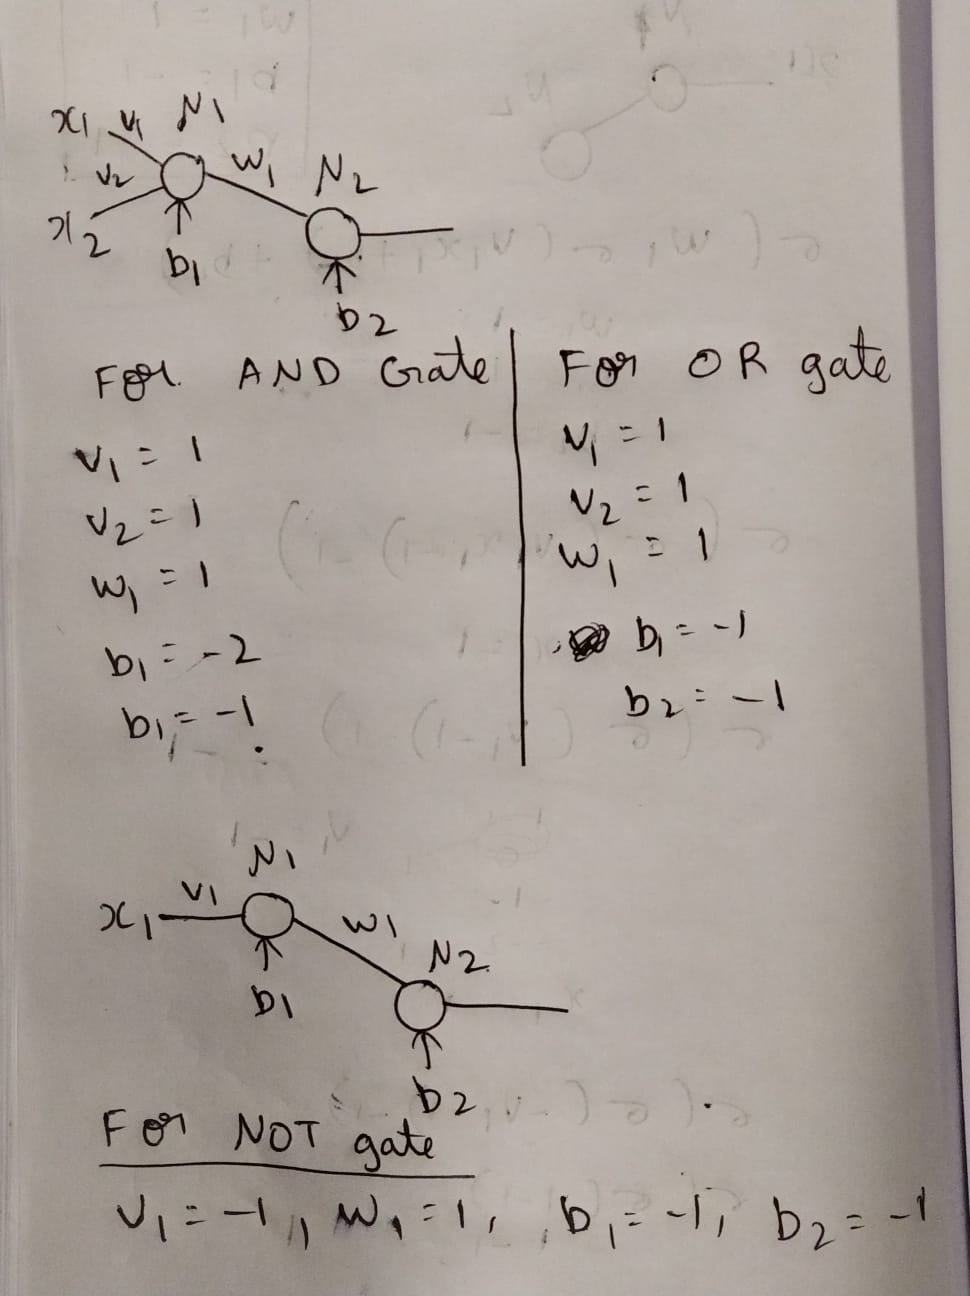 x1 v1 N1
v2 w1 N2
x2
b1
b2
For AND Gate
v1 = 1
v2 = 1
w1 = 1
b1 = -2
b1 = -1
For OR gate
v1 = 1
v2 = 1
w1 = 1
b1 = -1
b2 = -1
N1
x1 v1 w1
N2
b1
b2
For NOT gate
v1 = -1, w1 = 1, b1 = -1, b2 = -1